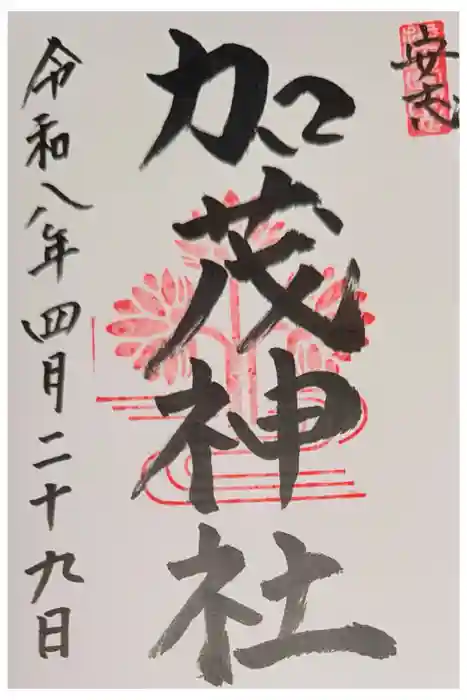 安志
加茂神社
令和八年四月二十九日